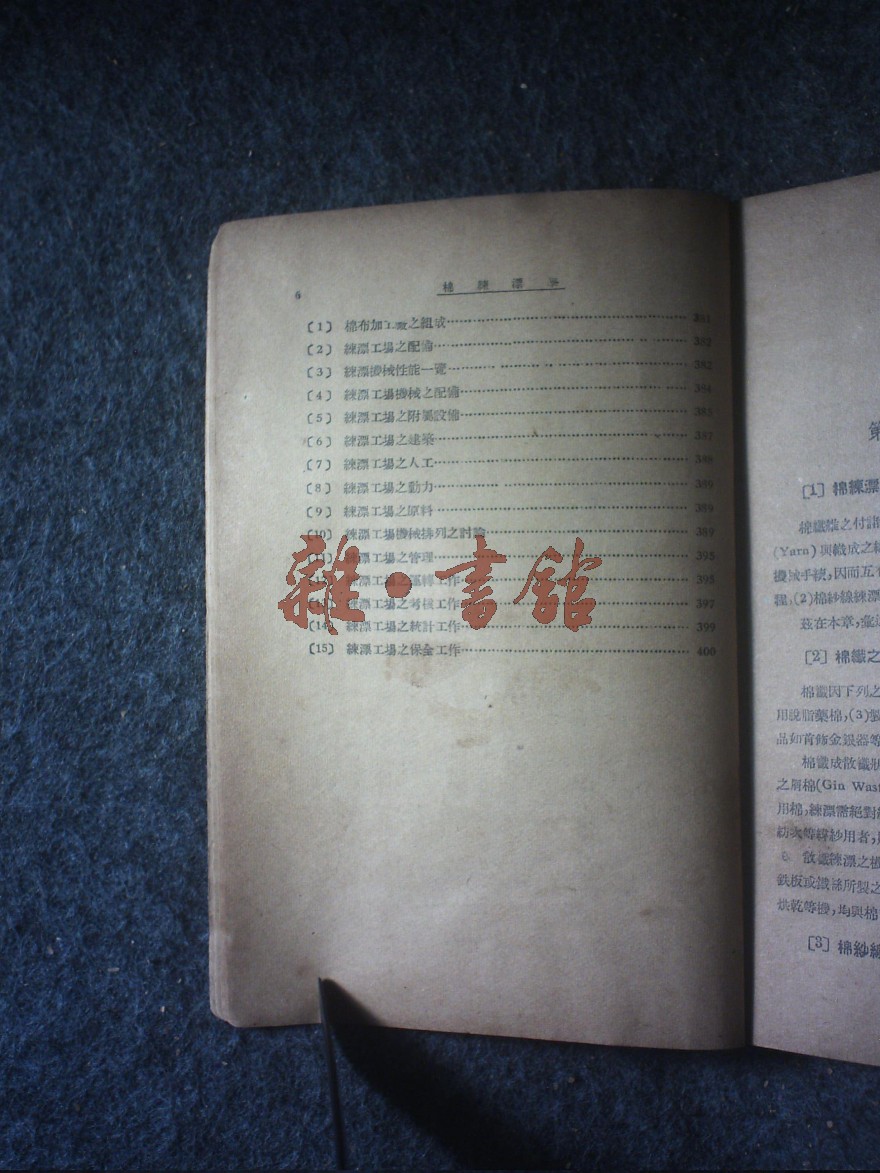 6
棉練漂學
〔1〕 棉布加工廠之組成 381
〔2〕 練漂工場之配備 382
〔3〕 練漂機械性能一覽 382
〔4〕 練漂工場機械之配備 384
〔5〕 練漂工場之附屬設備 385
〔6〕 練漂工場之建築 387
〔7〕 練漂工場之人工 388
〔8〕 練漂工場之動力 389
〔9〕 練漂工場之原料 389
〔10〕 練漂工場機械排列之討論 389
〔11〕 練漂工場之管理 395
〔12〕 練漂工場之運轉工作 395
〔13〕 練漂工場之考核工作 397
〔14〕 練漂工場之統計工作 399
〔15〕 練漂工場之保全工作 400
雜·書館
第
〔1〕 棉練漂
棉纖維之付諸
(Yarn)與織成之
機械手續,因而五
程,(2)棉紗線練漂
茲在本章,
〔2〕 棉纖之
棉纖因下列之
用脫脂藥棉,(3)製
品如首飾金銀器等
棉纖成散纖狀
之屑棉(Gin Wast
用棉,練漂需絕對
紡 等 紗用者,
散纖練漂之
鉄板或 所製之
烘乾等機,均與棉
〔3〕 棉紗線